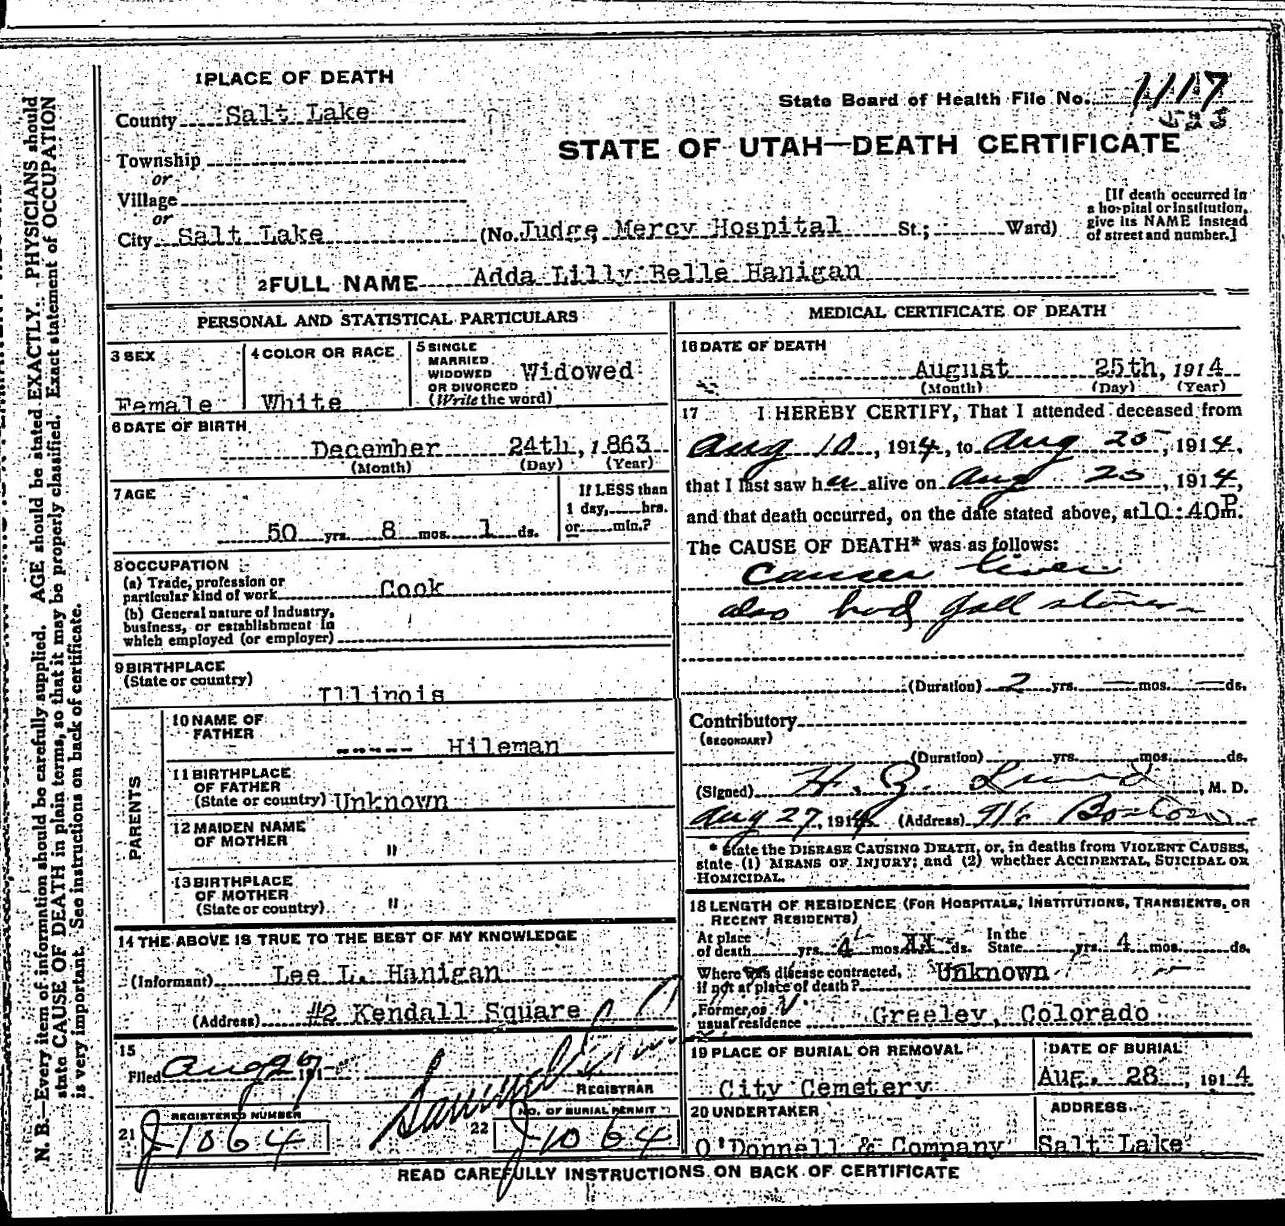 1 PLACE OF DEATH
County Salt Lake
State Board of Health File No. 1117
STATE OF UTAH—DEATH CERTIFICATE
Township
or
Village
or
City Salt Lake (No. Judge Mercy Hospital St.; Ward)
[If death occurred in
a hospital or institution,
give its NAME instead
of street and number.]
2 FULL NAME Adda Lilly Belle Hanigan
PERSONAL AND STATISTICAL PARTICULARS
3 SEX
Female
4 COLOR OR RACE
White
5 SINGLE
MARRIED
WIDOWED
OR DIVORCED
(Write the word)
Widowed
6 DATE OF BIRTH
December 24th, 1863
(Month) (Day) (Year)
7 AGE
50 yrs. 8 mos. 1 ds.
If LESS than
1 day, hrs.
or min.?
8 OCCUPATION
(a) Trade, profession or
particular kind of work Cook
(b) General nature of industry,
business, or establishment in
which employed (or employer)
9 BIRTHPLACE
(State or country)
Illinois
PARENTS
10 NAME OF
FATHER
----- Hileman
11 BIRTHPLACE
OF FATHER
(State or country) Unknown
12 MAIDEN NAME
OF MOTHER "
13 BIRTHPLACE
OF MOTHER
(State or country) "
14 THE ABOVE IS TRUE TO THE BEST OF MY KNOWLEDGE
(Informant) Lee L. Hanigan
(Address) #2 Kendall Square
15
Filed Aug 191
REGISTRAR
REGISTERED NUMBER
21 J-1064
NO. OF BURIAL PERMIT
22 J-1064
MEDICAL CERTIFICATE OF DEATH
16 DATE OF DEATH
August 25th, 1914
(Month) (Day) (Year)
17 I HEREBY CERTIFY, That I attended deceased from
Aug 10, 1914, to Aug 25, 1914,
that I last saw her alive on Aug 25, 1914,
and that death occurred, on the date stated above, at 10:40 P.m.
The CAUSE OF DEATH* was as follows:
Cancer liver
also had gall stones
(Duration) 2 yrs. — mos. — ds.
Contributory
(SECONDARY)
(Duration) yrs. mos. ds.
(Signed) H. Z. Lund, M. D.
Aug 27, 1914 (Address) 916 Boston
* State the DISEASE CAUSING DEATH, or, in deaths from VIOLENT CAUSES,
state (1) MEANS OF INJURY; and (2) whether ACCIDENTAL, SUICIDAL OR
HOMICIDAL.
18 LENGTH OF RESIDENCE (FOR HOSPITALS, INSTITUTIONS, TRANSIENTS, OR
RECENT RESIDENTS)
At place
of death yrs. 4 mos. XX ds. In the
State yrs. 4 mos. ds.
Where was disease contracted,
if not at place of death? Unknown
Former or
usual residence Greeley, Colorado
19 PLACE OF BURIAL OR REMOVAL
City Cemetery
DATE OF BURIAL
Aug. 28, 1914
20 UNDERTAKER
O'Donnell & Company
ADDRESS
Salt Lake
READ CAREFULLY INSTRUCTIONS ON BACK OF CERTIFICATE
N. B.—Every item of information should be carefully supplied. AGE should be stated EXACTLY. PHYSICIANS should
state CAUSE OF DEATH in plain terms, so that it may be properly classified. Exact statement of OCCUPATION
is very important. See instructions on back of certificate.